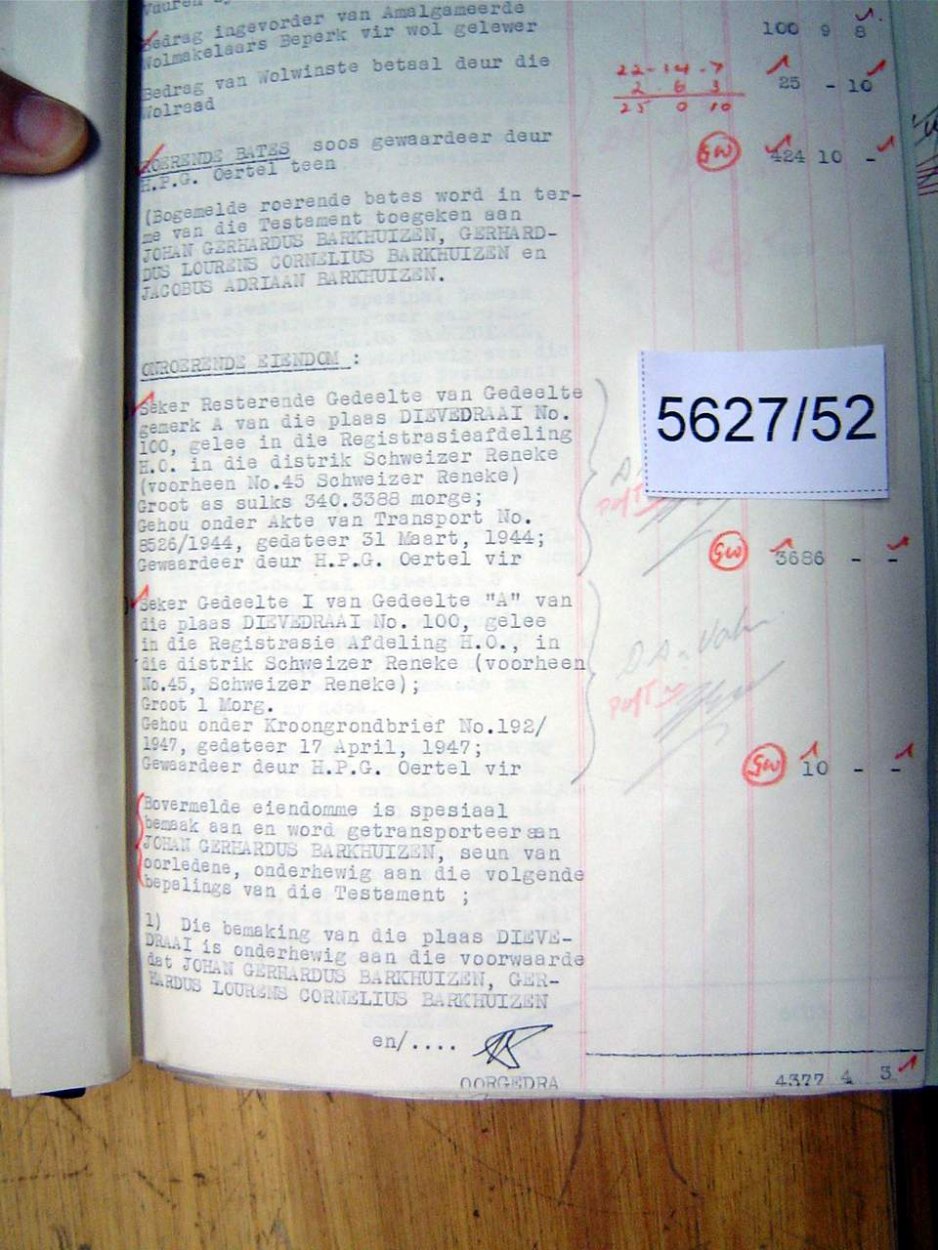 Bedrag ingevorder van Amalgameerde
Wolmakelaars Beperk vir wol gelewer 100 9 8
Bedrag van Wolwinste betaal deur die
Wolraad 25 - 10
22-14-7
2 6 3
25 0 10
ROERENDE BATES soos gewaardeer deur
H.P.G. Oertel teen GW 424 10 -
(Bogemelde roerende bates word in ter-
me van die Testament toegeken aan
JOHAN GERHARDUS BARKHUIZEN, GERHARD-
DUS LOURENS CORNELIUS BARKHUIZEN en
JACOBUS ADRIAAN BARKHUIZEN.
ONROERENDE EIENDOM :
5627/52
Seker Resterende Gedeelte van Gedeelte
gemerk A van die plaas DIEVEDRAAI No.
100, gelee in die Registrasieafdeling
H.O. in die distrik Schweizer Reneke
(voorheen No.45 Schweizer Reneke)
Groot as sulks 340.3388 morge;
Gehou onder Akte van Transport No.
8526/1944, gedateer 31 Maart, 1944;
Gewaardeer deur H.P.G. Oertel vir GW 3686 - -
Seker Gedeelte I van Gedeelte "A" van
die plaas DIEVEDRAAI No. 100, gelee
in die Registrasie Afdeling H.O., in
die distrik Schweizer Reneke (voorheen
No.45, Schweizer Reneke);
Groot 1 Morg.
Gehou onder Kroongrondbrief No.192/
1947, gedateer 17 April, 1947;
Gewaardeer deur H.P.G. Oertel vir GW 10 - -
Bovermelde eiendomme is spesiaal
bemaak aan en word getransporteer aan
JOHAN GERHARDUS BARKHUIZEN, seun van
oorledene, onderhewig aan die volgende
bepalings van die Testament ;
1) Die bemaking van die plaas DIEVE-
DRAAI is onderhewig aan die voorwaarde
dat JOHAN GERHARDUS BARKHUIZEN, GER-
HARDUS LOURENS CORNELIUS BARKHUIZEN
en/....
OORGEDRA 4377 4 3